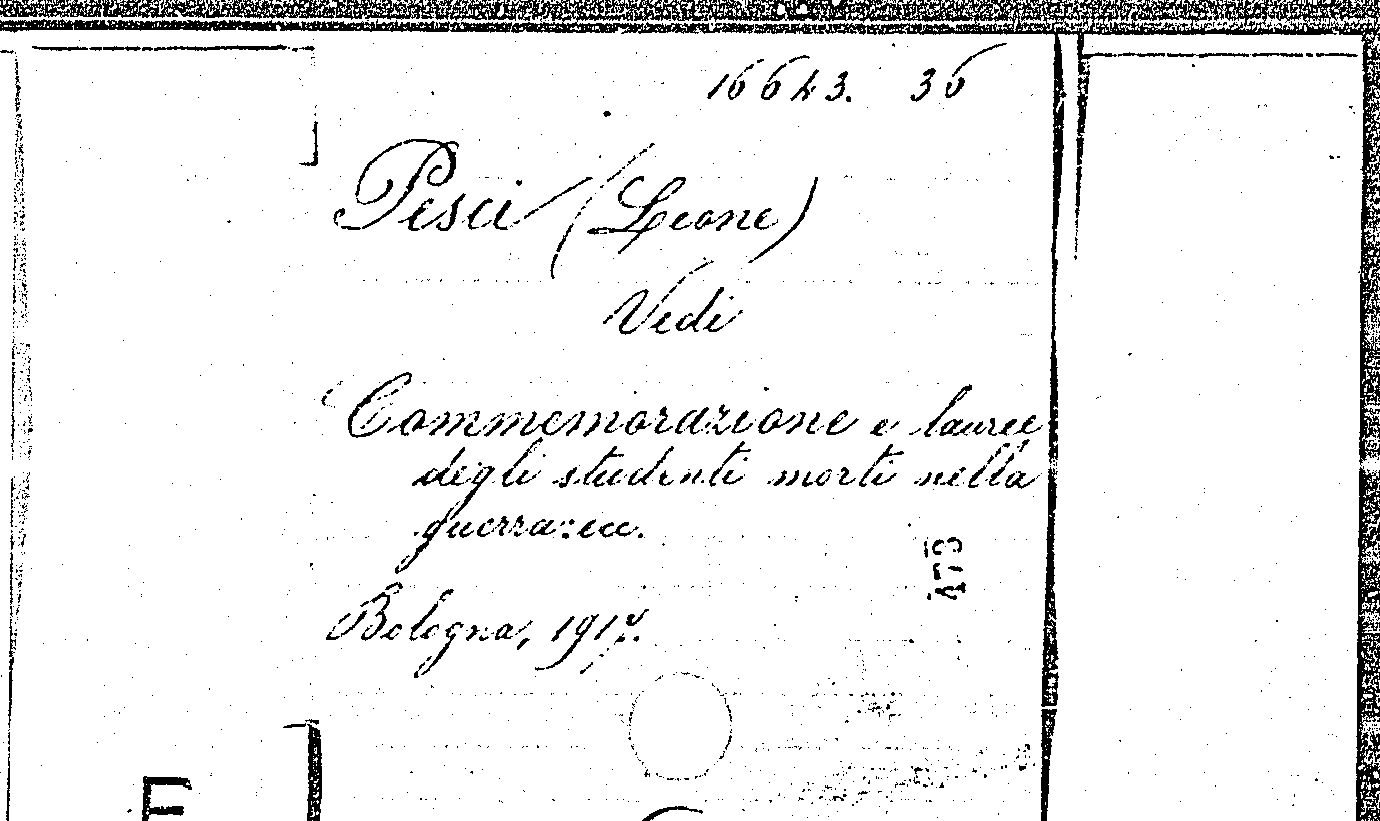 16643. 36
Pesci (Leone)
Vedi
Commemorazione e lauree
degli studenti morti nella
guerra: ecc.
473
Bologna, 1917.
E